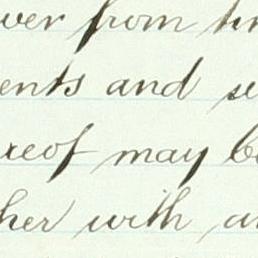 ver from tim
ents and se
reof may be
her with an